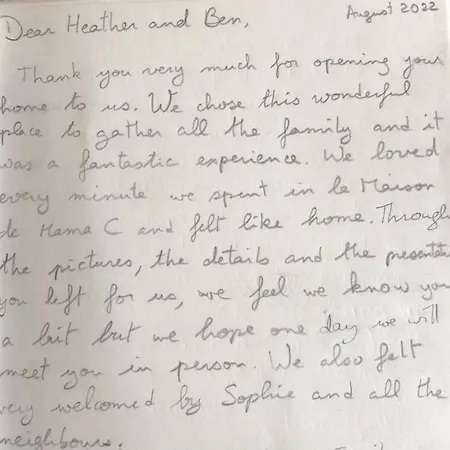 August 2022
Dear Heather and Ben,
Thank you very much for opening your
home to us. We chose this wonderful
place to gather all the family and it
was a fantastic experience. We loved
every minute we spent in la Maison
de Mama C and felt like home. Through
the pictures, the details and the presentation
you left for us, we feel we know you
a bit but we hope one day we will
meet you in person. We also felt
very welcomed by Sophie and all the
neighbours.